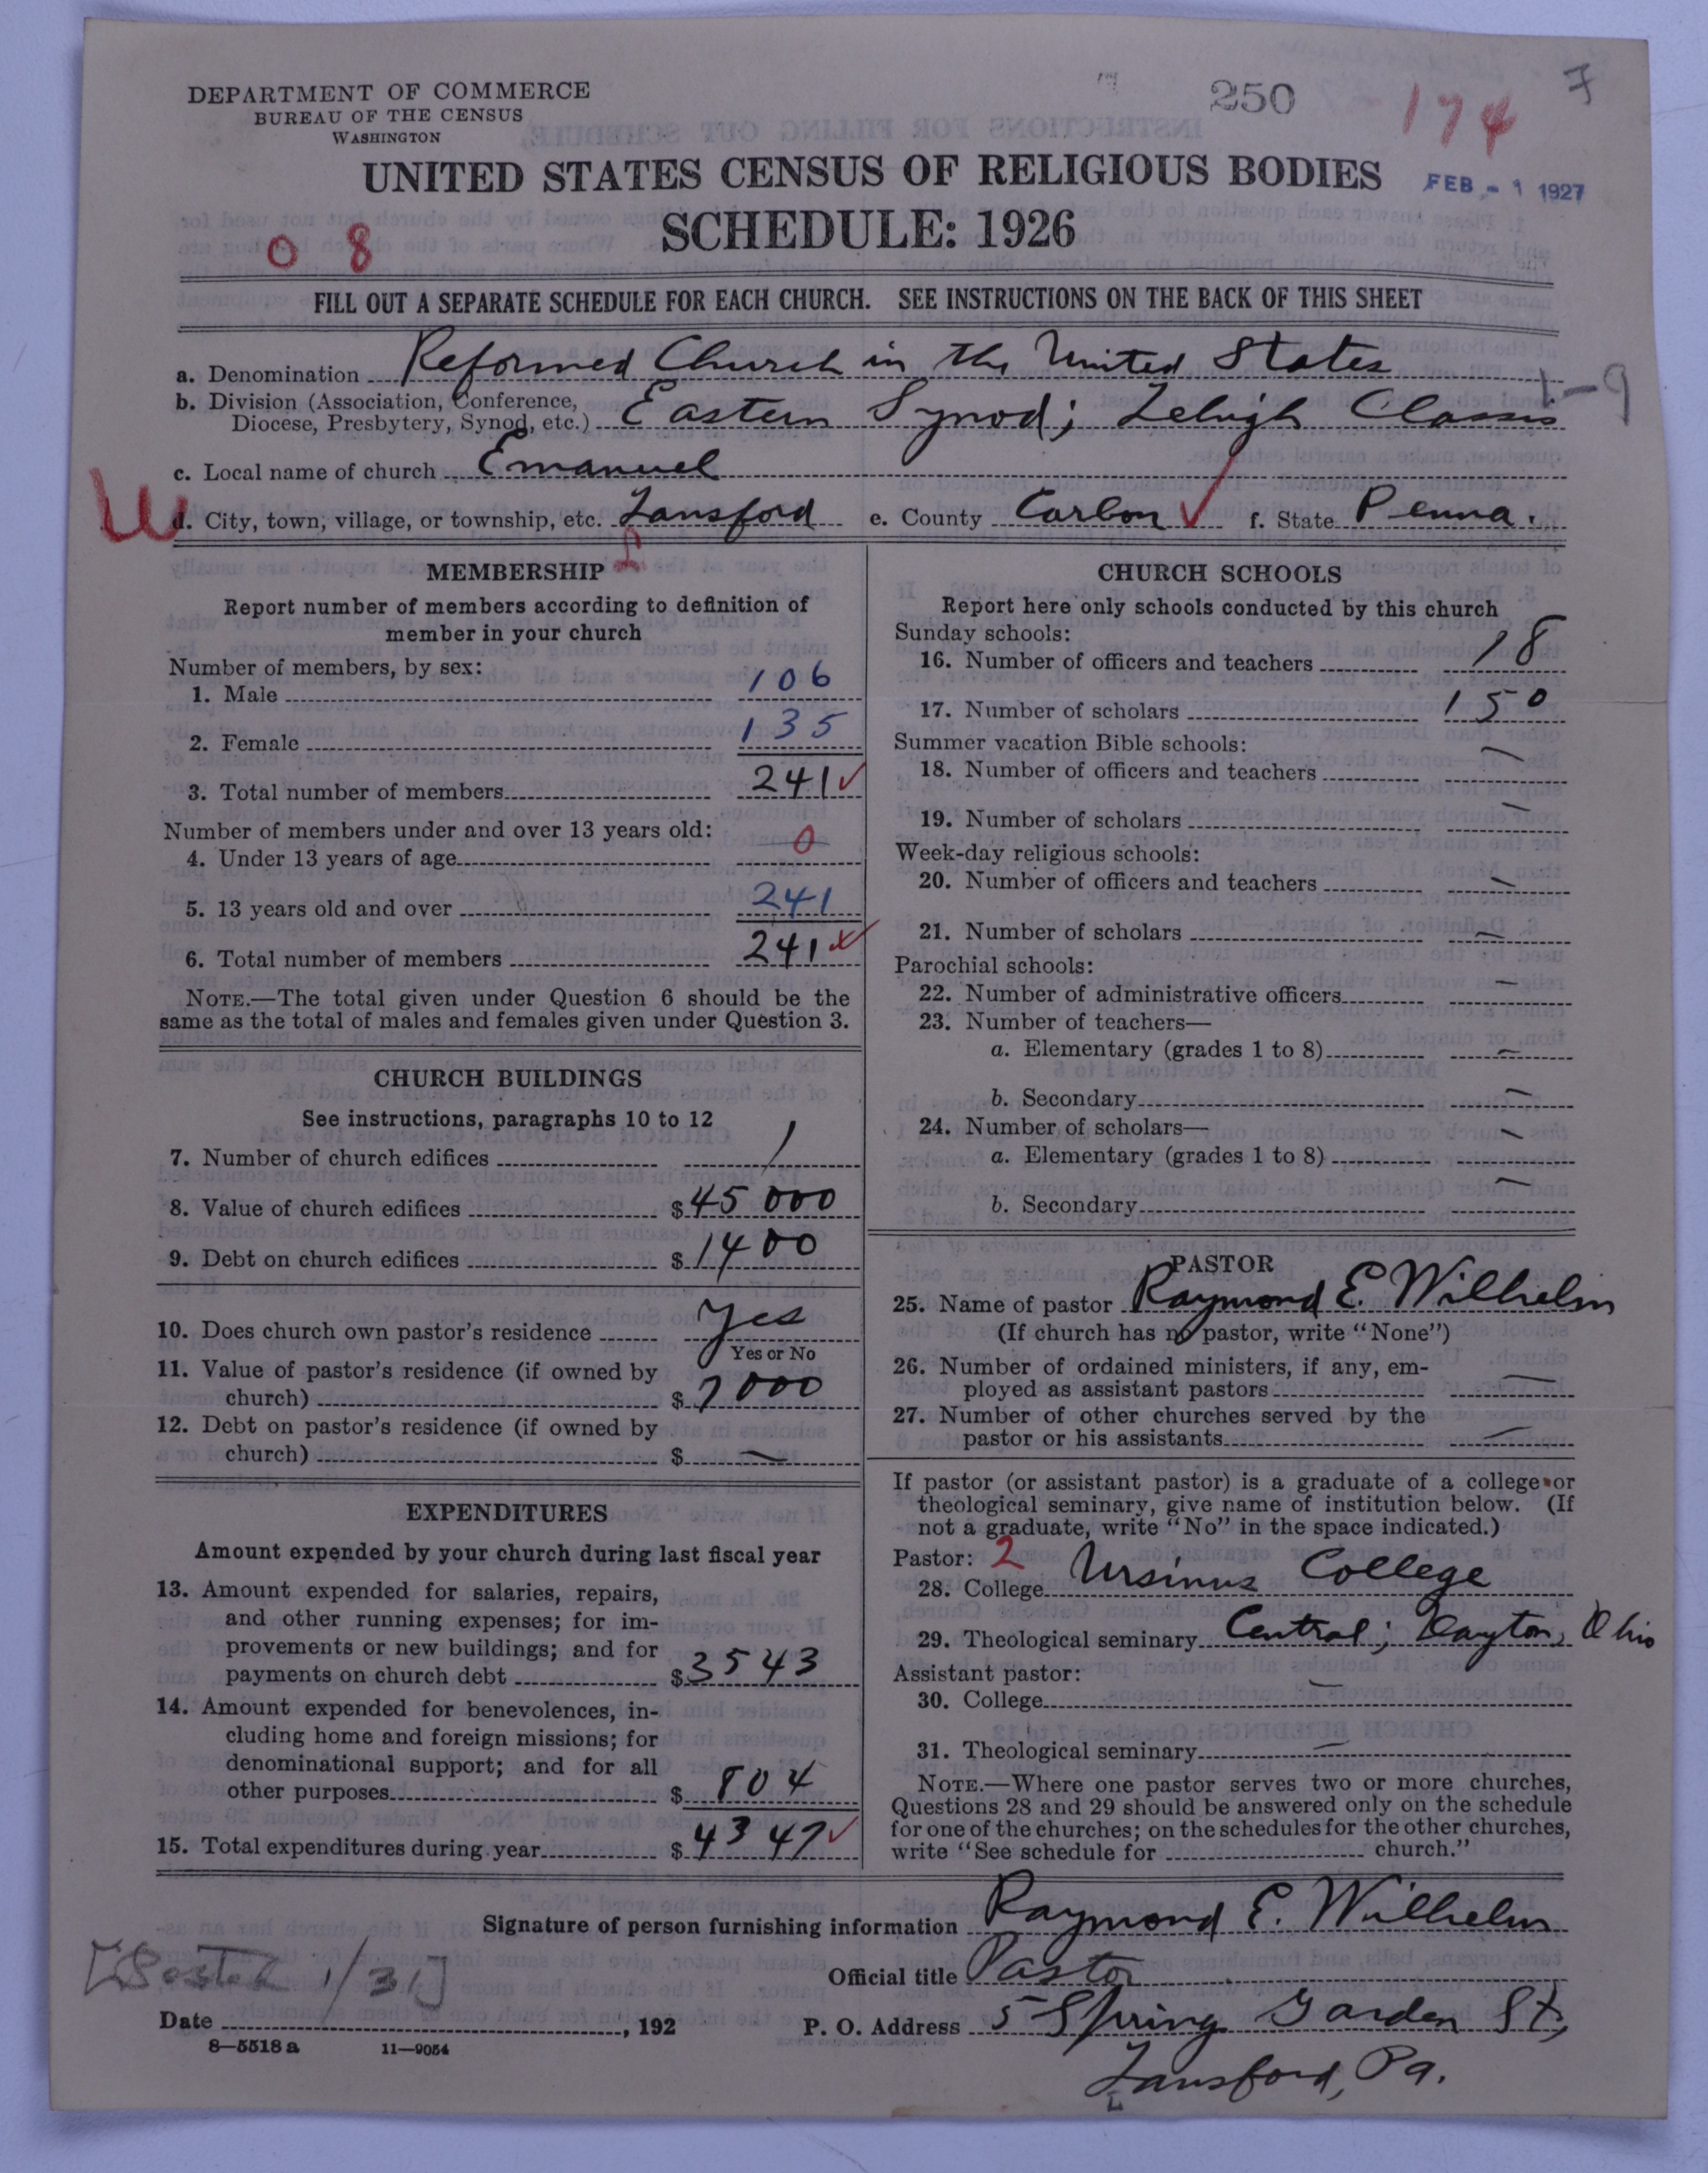 DEPARTMENT OF COMMERCE
BUREAU OF THE CENSUS
WASHINGTON
250
174
7
UNITED STATES CENSUS OF RELIGIOUS BODIES
FEB - 1 1927
SCHEDULE: 1926
0 8
FILL OUT A SEPARATE SCHEDULE FOR EACH CHURCH. SEE INSTRUCTIONS ON THE BACK OF THIS SHEET
a. Denomination Reformed Church in the United States
1-9
b. Division (Association, Conference,
Diocese, Presbytery, Synod, etc.) Eastern Synod; Lehigh Classis
c. Local name of church Emanuel
W
d. City, town, village, or township, etc. Lansford e. County Carbon ✓ f. State Penna.
L
MEMBERSHIP
Report number of members according to definition of
member in your church
Number of members, by sex:
1. Male 106
2. Female 135
3. Total number of members 241 ✓
Number of members under and over 13 years old:
4. Under 13 years of age 0
5. 13 years old and over 241
6. Total number of members 241 ✓
NOTE.—The total given under Question 6 should be the
same as the total of males and females given under Question 3.
CHURCH BUILDINGS
See instructions, paragraphs 10 to 12
7. Number of church edifices 1
8. Value of church edifices $45 000
9. Debt on church edifices $1400
10. Does church own pastor's residence Yes
Yes or No
11. Value of pastor's residence (if owned by
church) $7000
12. Debt on pastor's residence (if owned by
church) $ —
EXPENDITURES
Amount expended by your church during last fiscal year
13. Amount expended for salaries, repairs,
and other running expenses; for im-
provements or new buildings; and for
payments on church debt $3543
14. Amount expended for benevolences, in-
cluding home and foreign missions; for
denominational support; and for all
other purposes $804
15. Total expenditures during year $4347 ✓
CHURCH SCHOOLS
Report here only schools conducted by this church
Sunday schools:
16. Number of officers and teachers 18
17. Number of scholars 150
Summer vacation Bible schools:
18. Number of officers and teachers —
19. Number of scholars —
Week-day religious schools:
20. Number of officers and teachers —
21. Number of scholars —
Parochial schools:
22. Number of administrative officers —
23. Number of teachers—
a. Elementary (grades 1 to 8) —
b. Secondary —
24. Number of scholars—
a. Elementary (grades 1 to 8) —
b. Secondary —
PASTOR
25. Name of pastor Raymond E. Wilhelm
(If church has no pastor, write "None")
26. Number of ordained ministers, if any, em-
ployed as assistant pastors —
27. Number of other churches served by the
pastor or his assistants —
If pastor (or assistant pastor) is a graduate of a college or
theological seminary, give name of institution below. (If
not a graduate, write "No" in the space indicated.)
Pastor: 2
28. College Ursinus College
29. Theological seminary Central; Dayton, Ohio
Assistant pastor:
30. College —
31. Theological seminary —
NOTE.—Where one pastor serves two or more churches,
Questions 28 and 29 should be answered only on the schedule
for one of the churches; on the schedules for the other churches,
write "See schedule for church."
Signature of person furnishing information Raymond E. Wilhelm
Official title Pastor
1/31]
Date , 192
P. O. Address 5 Spring Garden St,
Lansford, Pa.
8—5518 a 11—9054